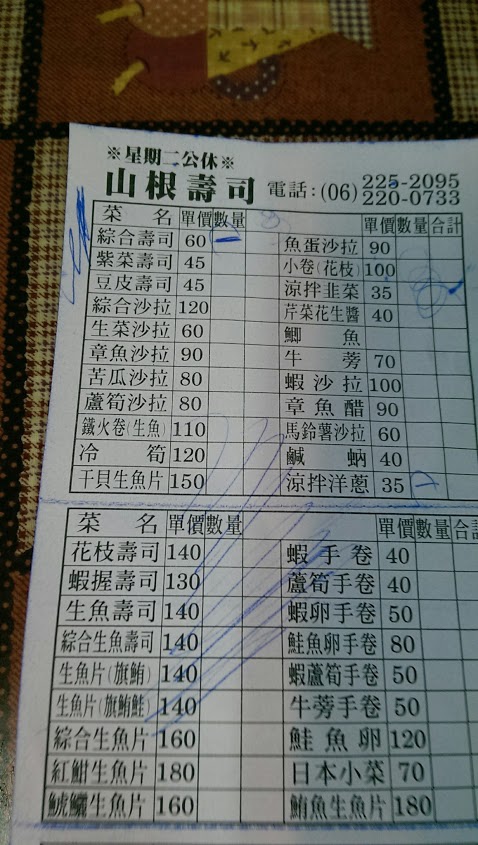 ※星期二公休※
山根壽司 電話:(06) 225-2095
220-0733
菜名 單價 數量 單價 數量 合計
綜合壽司 60 魚蛋沙拉 90
紫菜壽司 45 小卷(花枝) 100
豆皮壽司 45 涼拌韭菜 35
綜合沙拉 120 芹菜花生醬 40
生菜沙拉 60 鯽魚
章魚沙拉 90 牛蒡 70
苦瓜沙拉 80 蝦沙拉 100
蘆筍沙拉 80 章魚醋 90
鐵火卷(生魚) 110 馬鈴薯沙拉 60
冷筍 120 鹹蚋 40
干貝生魚片 150 涼拌洋蔥 35
菜名 單價 數量 單價 數量 合計
花枝壽司 140 蝦手卷 40
蝦握壽司 130 蘆筍手卷 40
生魚壽司 140 蝦卵手卷 50
綜合生魚壽司 140 鮭魚卵手卷 80
生魚片(旗鮪) 140 蝦蘆筍手卷 50
生魚片(旗鮪鮭) 140 牛蒡手卷 50
綜合生魚片 160 鮭魚卵 120
紅魽生魚片 180 日本小菜 70
生魚片 160 鮪魚生魚片 180